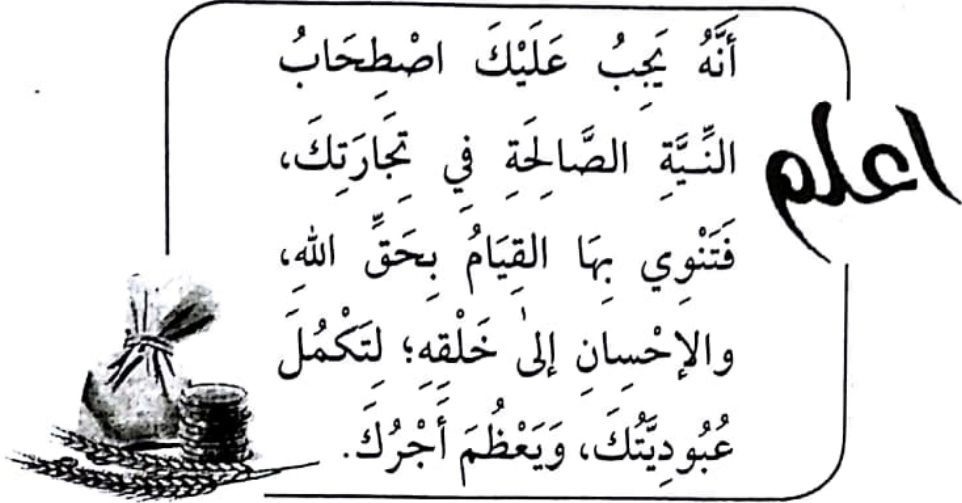 اعلم
أَنَّهُ يَجِبُ عَلَيْكَ اصْطِحَابُ
النِّيَّةِ الصَّالِحَةِ فِي تِجَارَتِكَ،
فَتَنْوِي بِهَا القِيَامُ بِحَقِّ اللهِ،
والإحْسِانِ إلىٰ خَلْقِهِ؛ لِتَكْمُلَ
عُبُودِيَّتُكَ، وَيَعْظُمَ أَجْرُكَ.